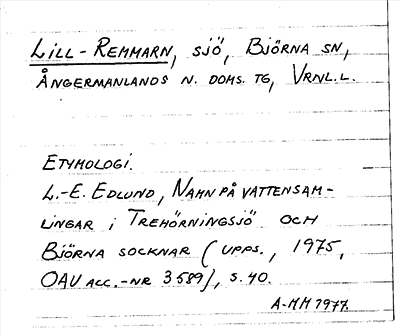 LILL-REMMARN, SJÖ, BJÖRNA SN,
ÅNGERMANLANDS N. DOMS. TG, VRNL.L.
ETYMOLOGI.
L.-E. EDLUND, NAMN PÅ VATTENSAM-
LINGAR I TREHÖRNINGSJÖ OCH
BJÖRNA SOCKNAR (UPPS., 1975,
OAU ACC.-NR 3589), S. 40.
A-MM 1977.